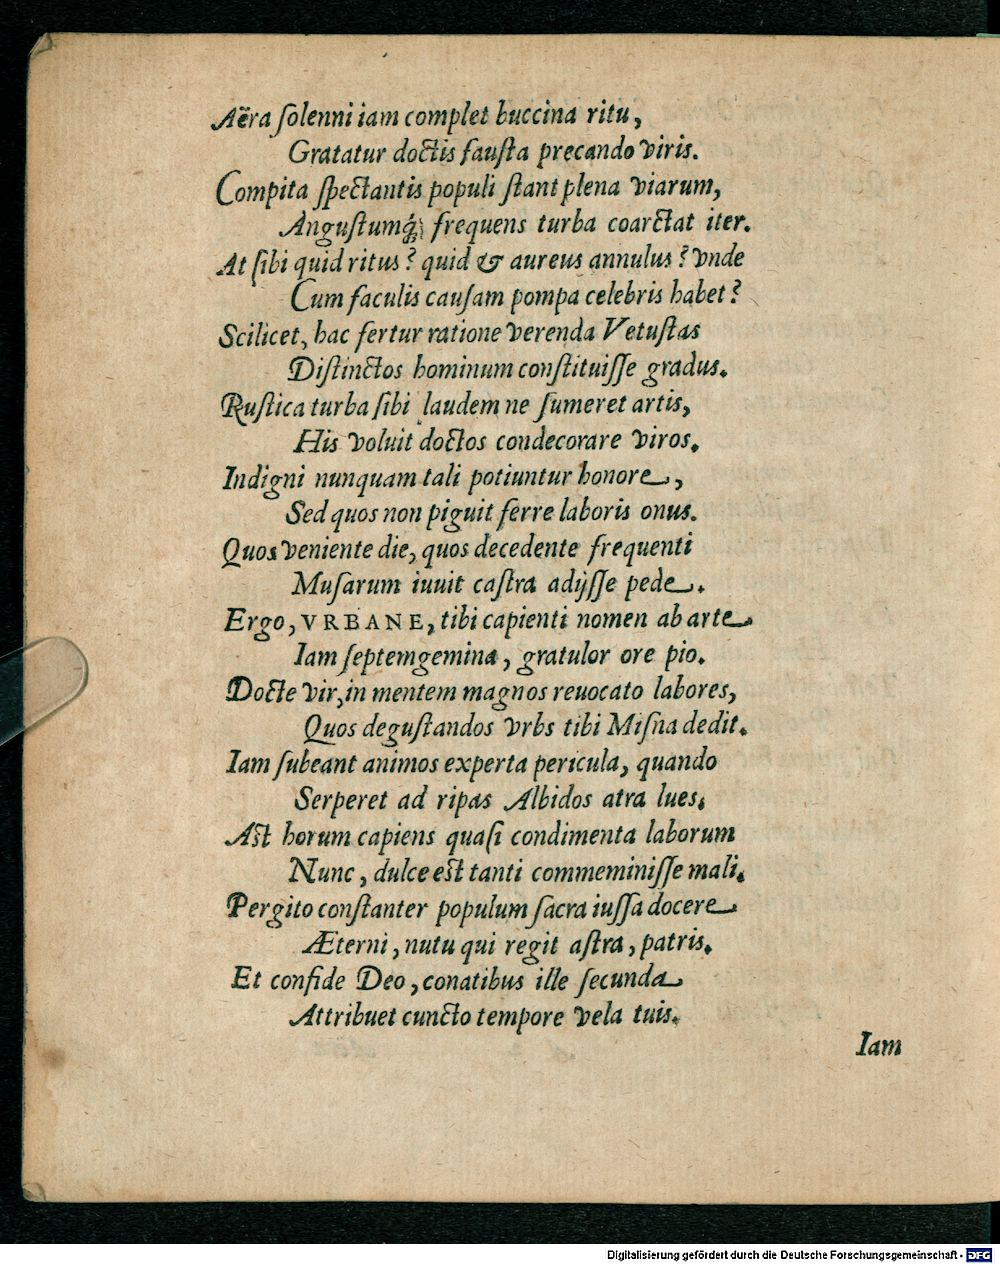 Aëra ſolenni iam complet buccina ritu,
Gratatur doctis fauſta precando viris.
Compita ſpectantis populi ſtant plena viarum,
Anguſtumq́; frequens turba coarctat iter.
At ſibi quid ritus? quid & aureus annulus? vnde
Cum faculis cauſam pompa celebris habet?
Scilicet, hac fertur ratione verenda Vetuſtas
Diſtinctos hominum conſtituiſſe gradus.
Ruſtica turba ſibi laudem ne ſumeret artis,
His voluit doctos condecorare viros.
Indigni nunquam tali potiuntur honore,
Sed quos non piguit ferre laboris onus.
Quos veniente die, quos decedente frequenti
Muſarum iuuit caſtra adijſſe pede.
Ergo, VRBANE, tibi capienti nomen ab arte
Iam ſeptemgemina, gratulor ore pio.
Docte vir, in mentem magnos reuocato labores,
Quos deguſtandos vrbs tibi Miſna dedit.
Iam ſubeant animos experta pericula, quando
Serperet ad ripas Albidos atra lues.
Aſt horum capiens quaſi condimenta laborum
Nunc, dulce eſt tanti commeminiſſe mali.
Pergito conſtanter populum ſacra iuſſa docere
Æterni, nutu qui regit aſtra, patris.
Et confide Deo, conatibus ille ſecunda
Attribuet cuncto tempore vela tuis.
Iam
Digitalisierung gefördert durch die Deutsche Forschungsgemeinschaft - DFG